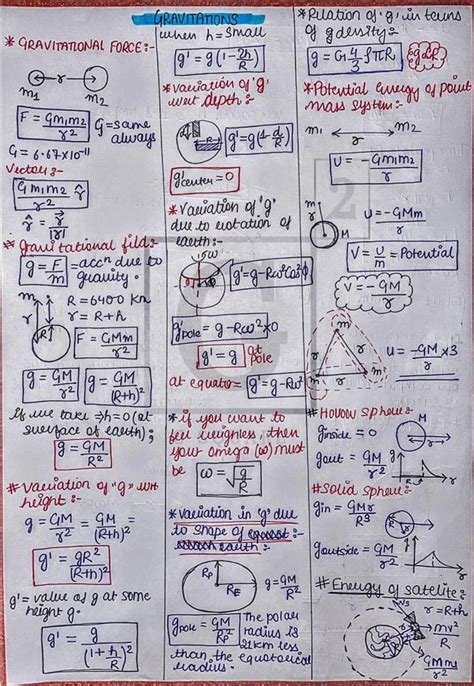 GRAVITATIONS
* GRAVITATIONAL FORCE:-
r
m1 m2
F = Gm1m2/r² G = same always
G = 6.67x10⁻¹¹
Vector:-
Gm1m2/r² r̂
r̂ = r⃗/|r⃗|
* Gravitational fild:-
g = F/m = accⁿ due to gravity.
m
R = 6400 Km
r = R+h
R
F = GMm/r²
g = GM/r² g = GM/(R+h)²
If we take → h=0 (at
surface of earth);
g = GM/R²
# Variation of "g" wrt
height:-
g = GM/r² = GM/(R+h)²
g' = gR²/(R+h)²
g' = value of g at some
height g.
g' = g/(1+h/R)²
when h = small
g' = g(1-2h/R)
* Variation of 'g'
wrt depth:-
g' = g(1-d/R)
g'center = 0
* Variation of 'g'
due to rotation of
earth:-
g' = g-Rω²Cos²ϕ
g'pole = g-Rω²x0
g' = g at pole
at equator = g' = g-Rω²
* if you want to
feel weighless, then
your omega (ω) must
be ω = √g/R
* Variation in 'g' due
to shape of
earth:-
RP
RE
g = GM/R²
gpole = GM/R² The polar
radius is
21km less
than the equatorical
radius.
* Relation of 'g' in terms
of g density:-
g = G 4/3 ρπR
* Potential energy of point
mass system:-
m1 m2
r
U = -Gm1m2/r
m
r
M
U = -GMm/r
V = U/m = Potential
V = -GM/r
m
r r
m r m
U = -GM/r x3
# Hollow sphere:-
M
ginside = 0
gout = GM/r²
# Solid sphere:-
gin = GMr/R³
goutside = GM/r²
# Energy of satelite:-
r = R+h
mv²/r
GMm/r²